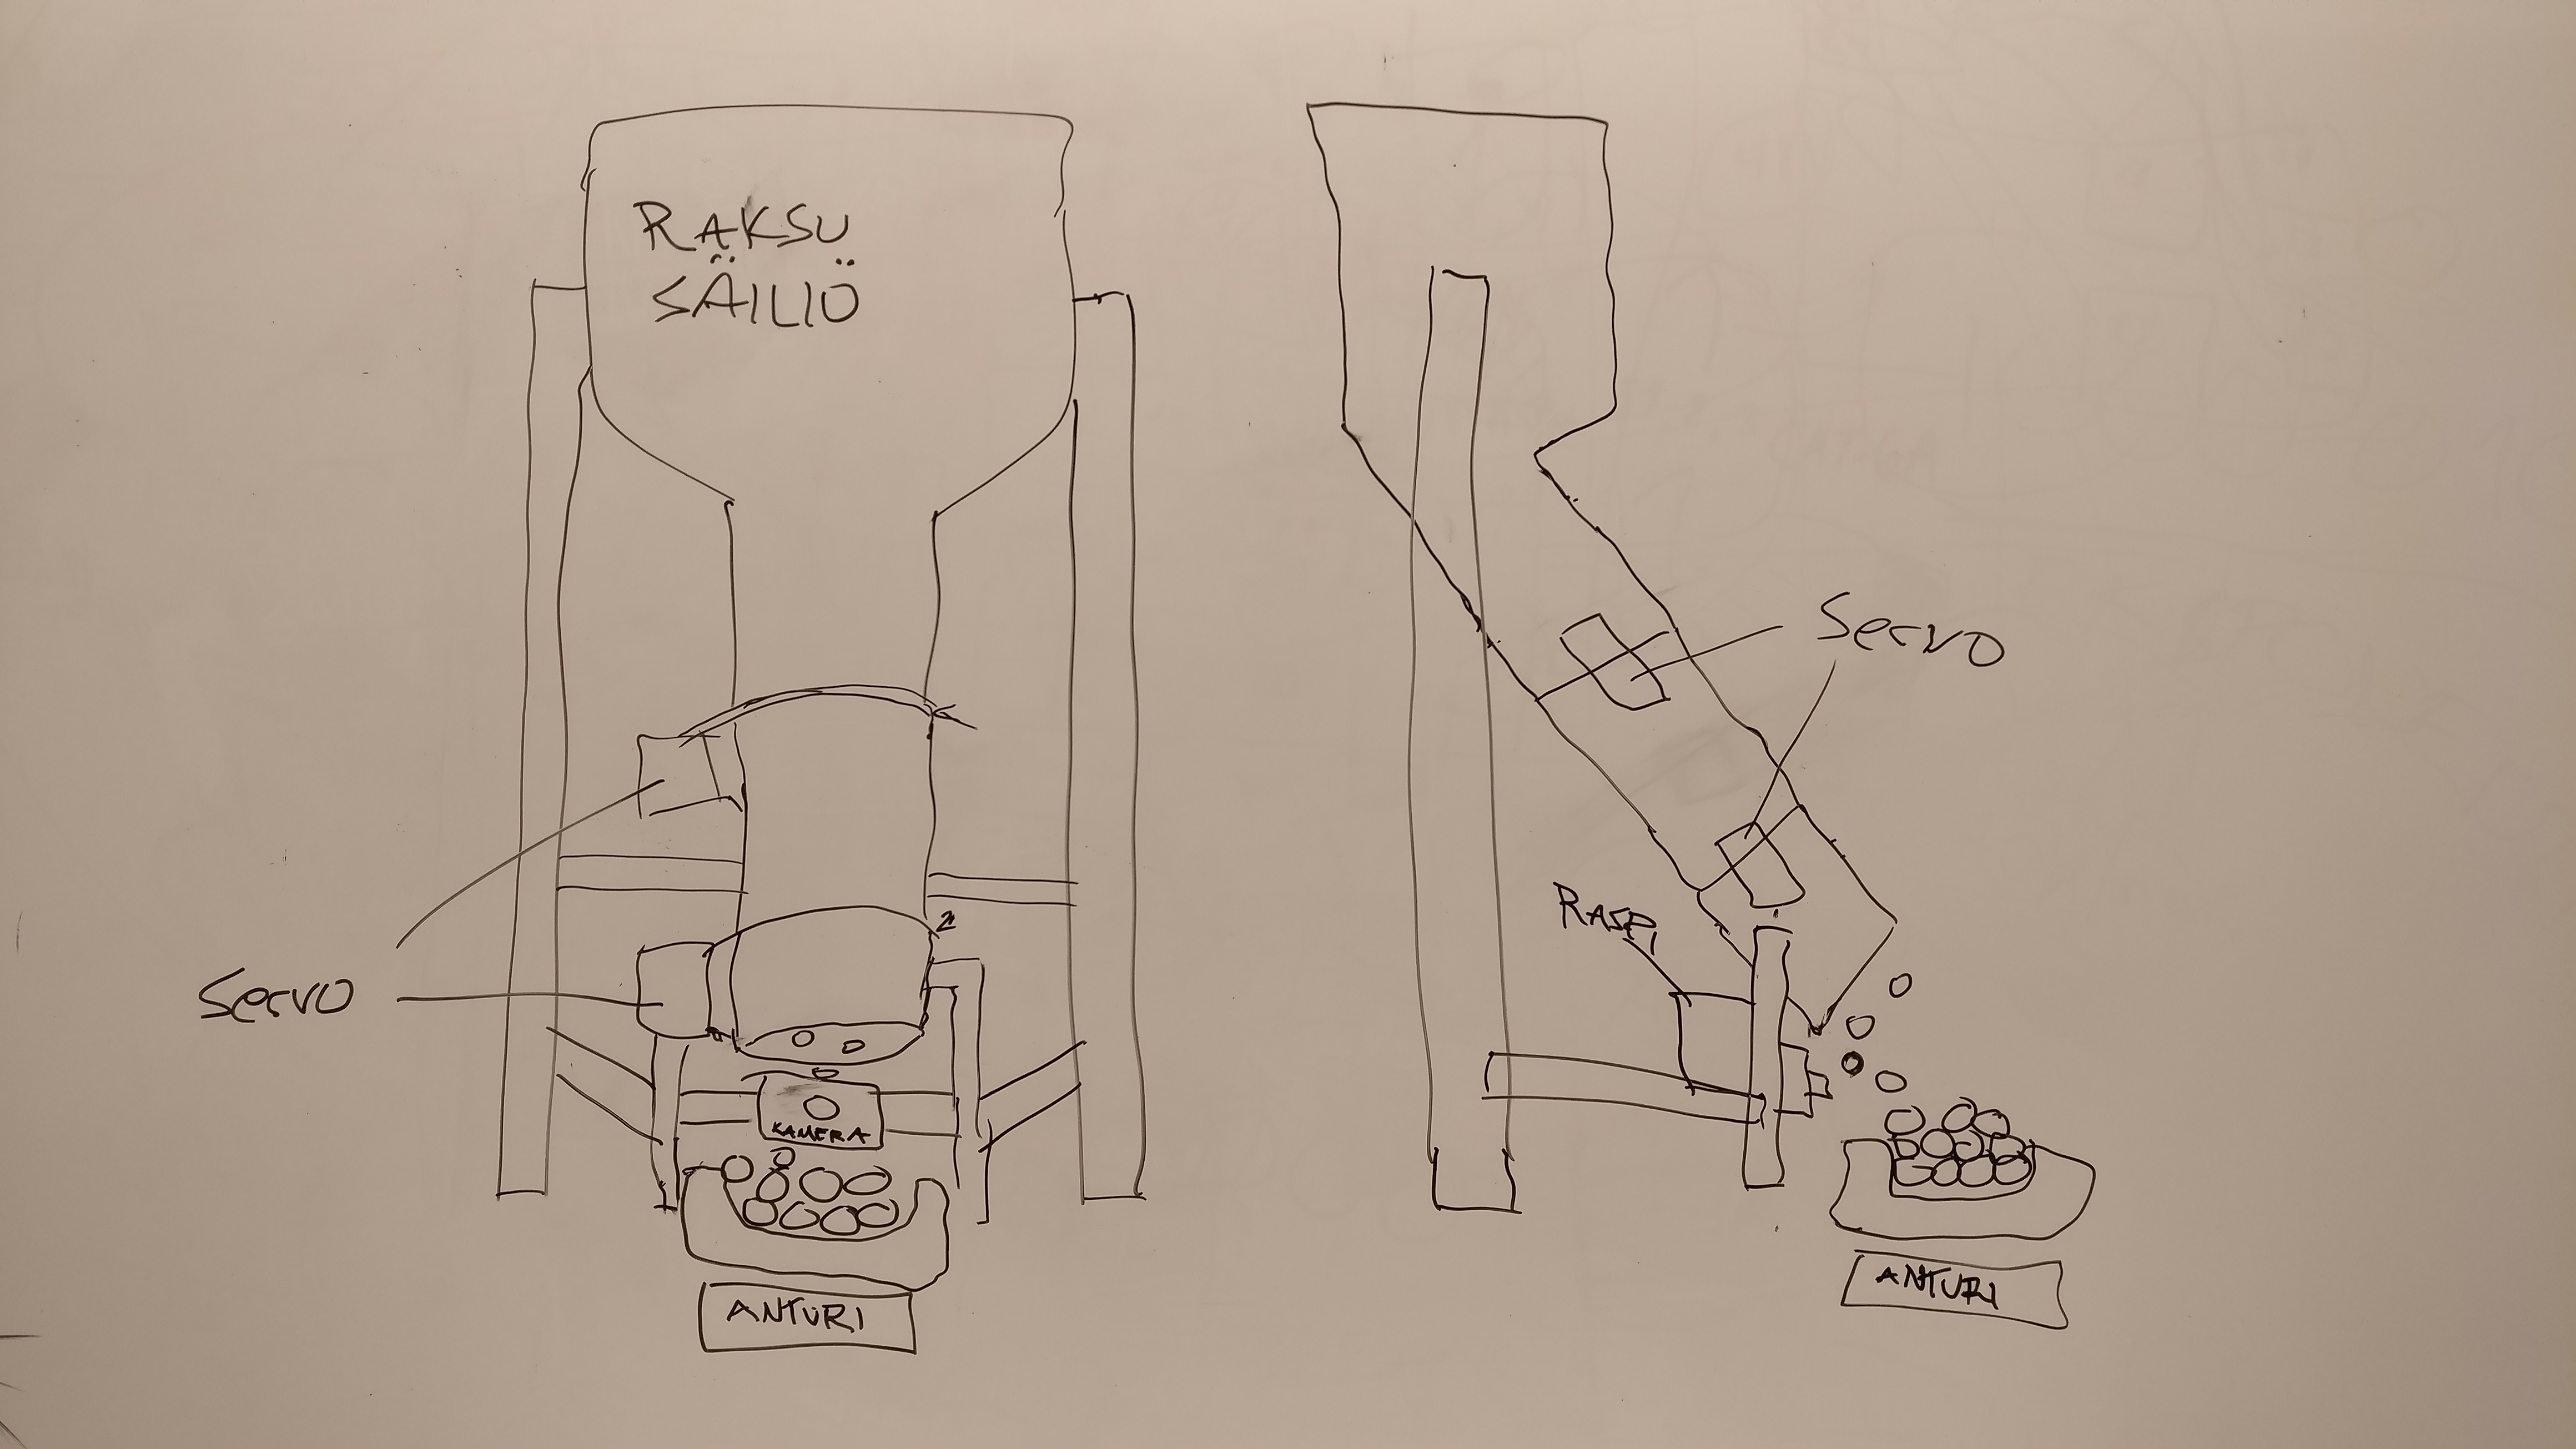 RAKSU
SÄILIÖ
Servo
KAMERA
ANTURI
Servo
RASPI
ANTURI